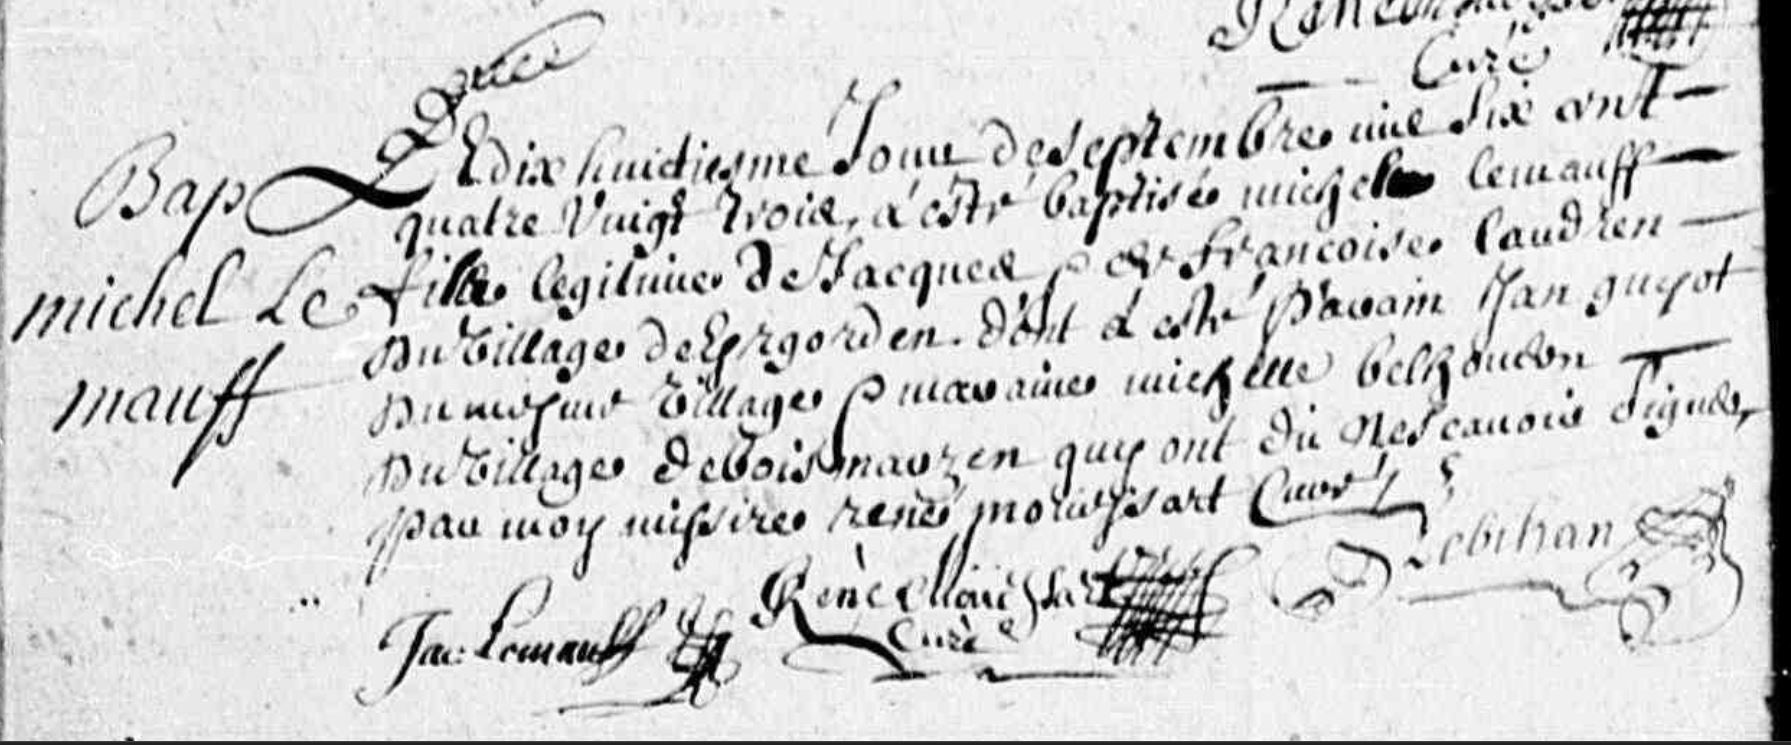 Curé
Bap
michel Le
mauff
Le dix huictiesme Jour de septembre mil six cent
quatre Vingt trois, a esté baptisé michel lemauff
fille legitime de Jacques et francoise laudren
du village de Kergorden. dont a esté parain Jan guyot
du mesme village maraine michelle belhoucon
du village de bois quy ont du Ne scauoir signer
par moy missire rené Curé
Jac Lemauff René Curé Lebihan